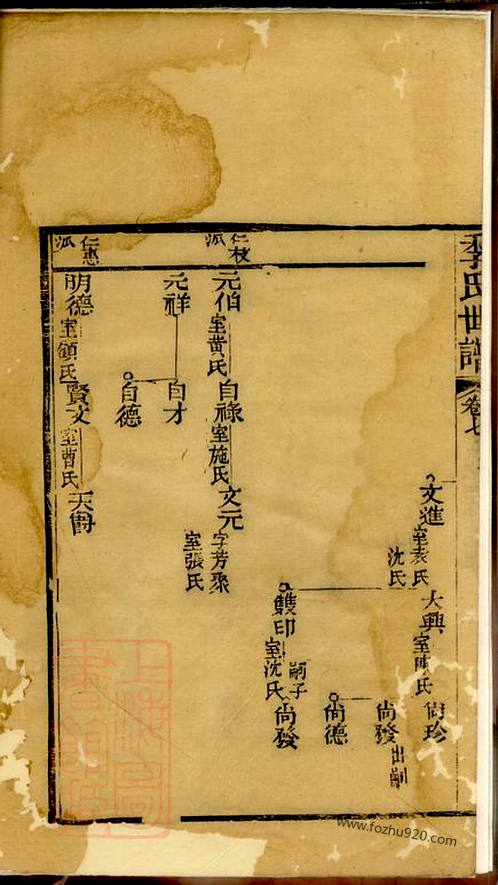 李氏世譜 卷七
文進 室袁氏 沈氏
大興 室陳氏 尚珍
尚發 出嗣
尚德
雙印 室沈氏 嗣子 尚發
仁枝派
元伯 室黄氏 自祿 室施氏 文元 字芳聚 室張氏
元祥 自才
自德
仁惠派
明德 室顧氏 賢文 室曹氏 天爵
www.fozhu920.com